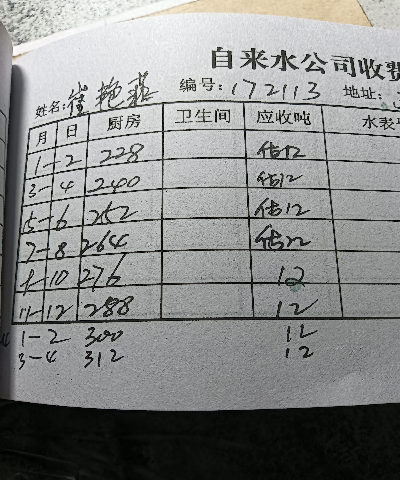 自来水公司收费
姓名: 崔艳燕 编号: 172113 地址:
月 日 厨房 卫生间 应收吨 水表
1-2 228 估12
3-4 240 估12
5-6 252 估12
7-8 264 估12
9-10 276 12
11-12 288 12
1-2 300 12
3-4 312 12